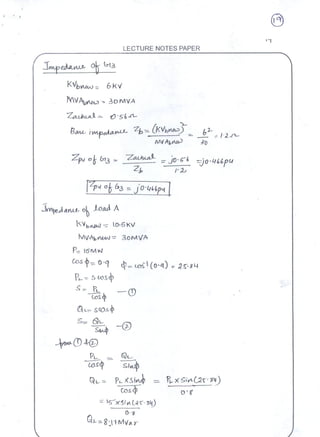 19
LECTURE NOTES PAPER
Impedance of G3
KVbnew = 6KV
MVAbnew = 30MVA
Zactual = 0.56Ω
Base impedance Zb = (KVbnew)² / MVAbnew = 6² / 30 = 1.2Ω
Zpu of G3 = Zactual / Zb = j0.56 / 1.2 = j0.466pu
Zpu of G3 = j0.466pu
Impedance of load A
KVbnew = 10.5KV
MVAbnew = 30MVA
P = 15MW
Cosϕ = 0.9 ϕ = cos⁻¹(0.9) = 25.84
PL = S cosϕ
S = PL / Cosϕ — ①
QL = S sinϕ
S = QL / Sinϕ — ②
from ① & ②
PL / Cosϕ = QL / Sinϕ
QL = PL × Sinϕ / Cosϕ = PL × Sin(25.84) / 0.8
= 15 × Sin(25.84) / 0.8
QL = 8.17MVAr